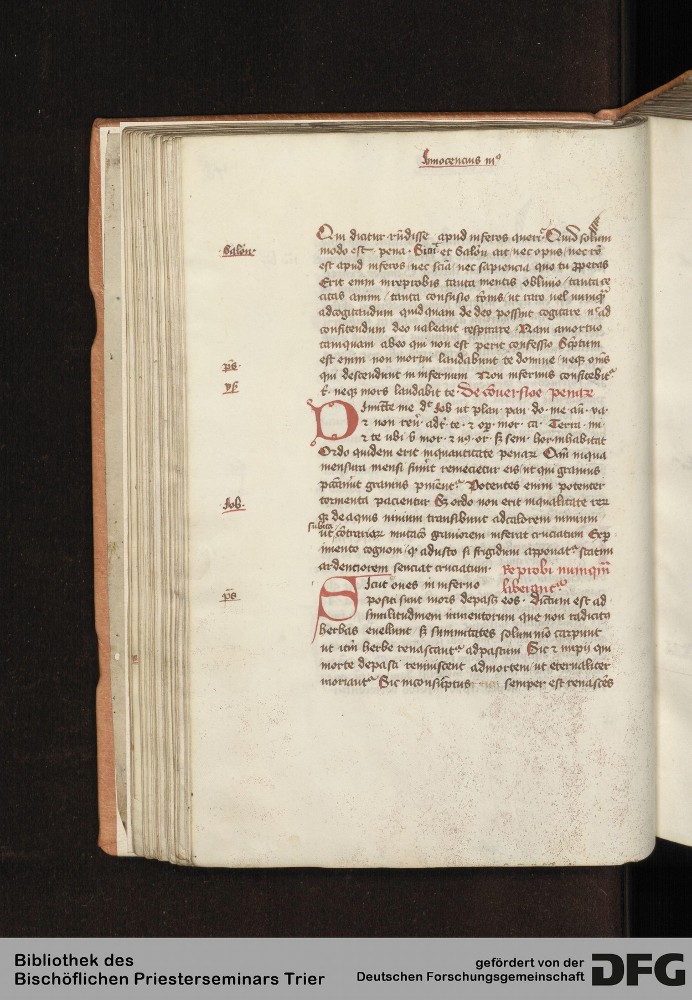 Innocencius iijꝰ
Qui dicitur rūdisse apud inferos querit͛ Quid solum
·Salōn·
modo est pena · Sicut et Salōn ait nec opus nec rō
est apud inferos nec sciā nec sapiencia quo tu ꝓperas
Erit enim in reprobis tanta mentis oblivio tanta ce
citas animi tanta confusio rōnis ut raro vel nunqꝫ
ad cogitandum quidquam de deo possint cogitare ad
confitendum deo valeant respirare Nam a mortuo
tamquam ab eo qui non est perit confessio Scptum
p̄s·
est enim non mortui laudabunt te domine neqꝫ oms̄
qui descendunt in infernum Non infernus confitebit͛
ps
t͛ neqꝫ mors laudabit te · De cōversiōe penarꝝ
Dimitte me dt̄ Iob ut plan· pau· do· me· an̄· va·
⁊ non reu͛· ad t͛· te· ⁊ op̄· mor· ca· Terra · mi·
⁊ te· ubi· v̄· mor· ⁊ nꝰ· or· s; sem· hor· inhabitat
Ordo quidem erit in quantitate penarꝝ Qm̄ in qua
mensura mensi fuerit͛ remecietur eis ut qui gravius
peccaverūt gravius puniēnt͛ Potentes enim potenter
Iob·
tormenta pacientur Sꝫ ordo non erit in qualitate rerꝝ
qꝫ de aquis nivium transibunt ad calorem nimium
subita
ut cōtrariorꝝ mutacō graviorem inferat cruciatum Exp͛
imento cognovi qꝫ adusto si frigidum apponat͛ statim
ardenciorem senciat cruciatum · Reprobi numqꝫ
Sicut oves in inferno liberantᵘʳ
p̄s
positi sunt mors depascit eos · Dictum est ad
similitudinem iumentorum que non radicitꝰ
herbas evellunt sꝫ summitates solummō carpunt
ut itm̄ herbe renascant͛ ad pastum Sic ⁊ impij qui
morte depasti reviviscent ad mortem ut eternaliter
moriant͛ Sic inconsūptus semper est renascēs
Bibliothek des
Bischöflichen Priesterseminars Trier
gefördert von der
Deutschen Forschungsgemeinschaft
DFG